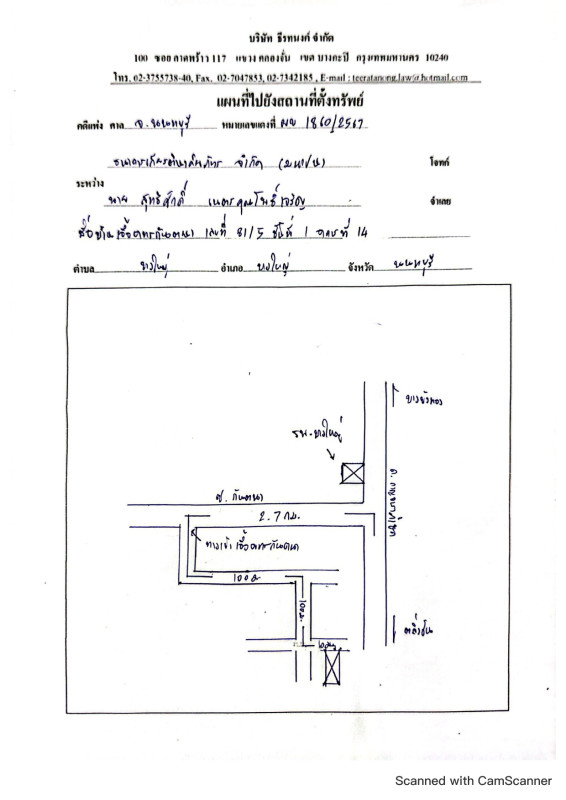 บริษัท ธีรทนงก์ จำกัด
100 ซอยลาดพร้าว 117 แขวง คลองจั่น เขต บางกะปิ กรุงเทพมหานคร 10240
โทร. 02-3755738-40, Fax. 02-7047853, 02-7342185 , E-mail : teeratanong.law@hotmail.com
แผนที่ไปยังสถานที่ตั้งทรัพย์
คดีแพ่ง ศาล จ.นนทบุรี หมายเลขแดงที่ ผบ 1860/2567
ธนาคารเกียรตินาคินภัทร จำกัด (มหาชน) โจทก์
ระหว่าง
นาย สุทธิศักดิ์ จำเลย
เลขที่ 81/5 ชั้นที่ 1 อาคารที่ 14
ตำบล บางใหญ่ อำเภอ บางใหญ่ จังหวัด นนทบุรี
บางบัวทอง
รพ.บางใหญ่
ถ. กาญจนาภิเษก
ซ. กันตนา
2.7 กม.
ทางเข้า เอื้ออาทรกันตนา
100ม
100ม.
ตลิ่งชัน
Scanned with CamScanner